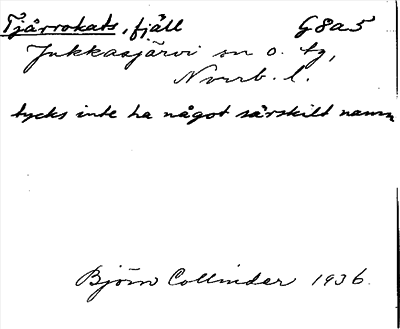 Tjårrokats, fjäll G8a5
Jukkasjärvi sn o. tg,
Norrb. l.
tycks inte ha något särskilt namn
Björn Collinder 1936.